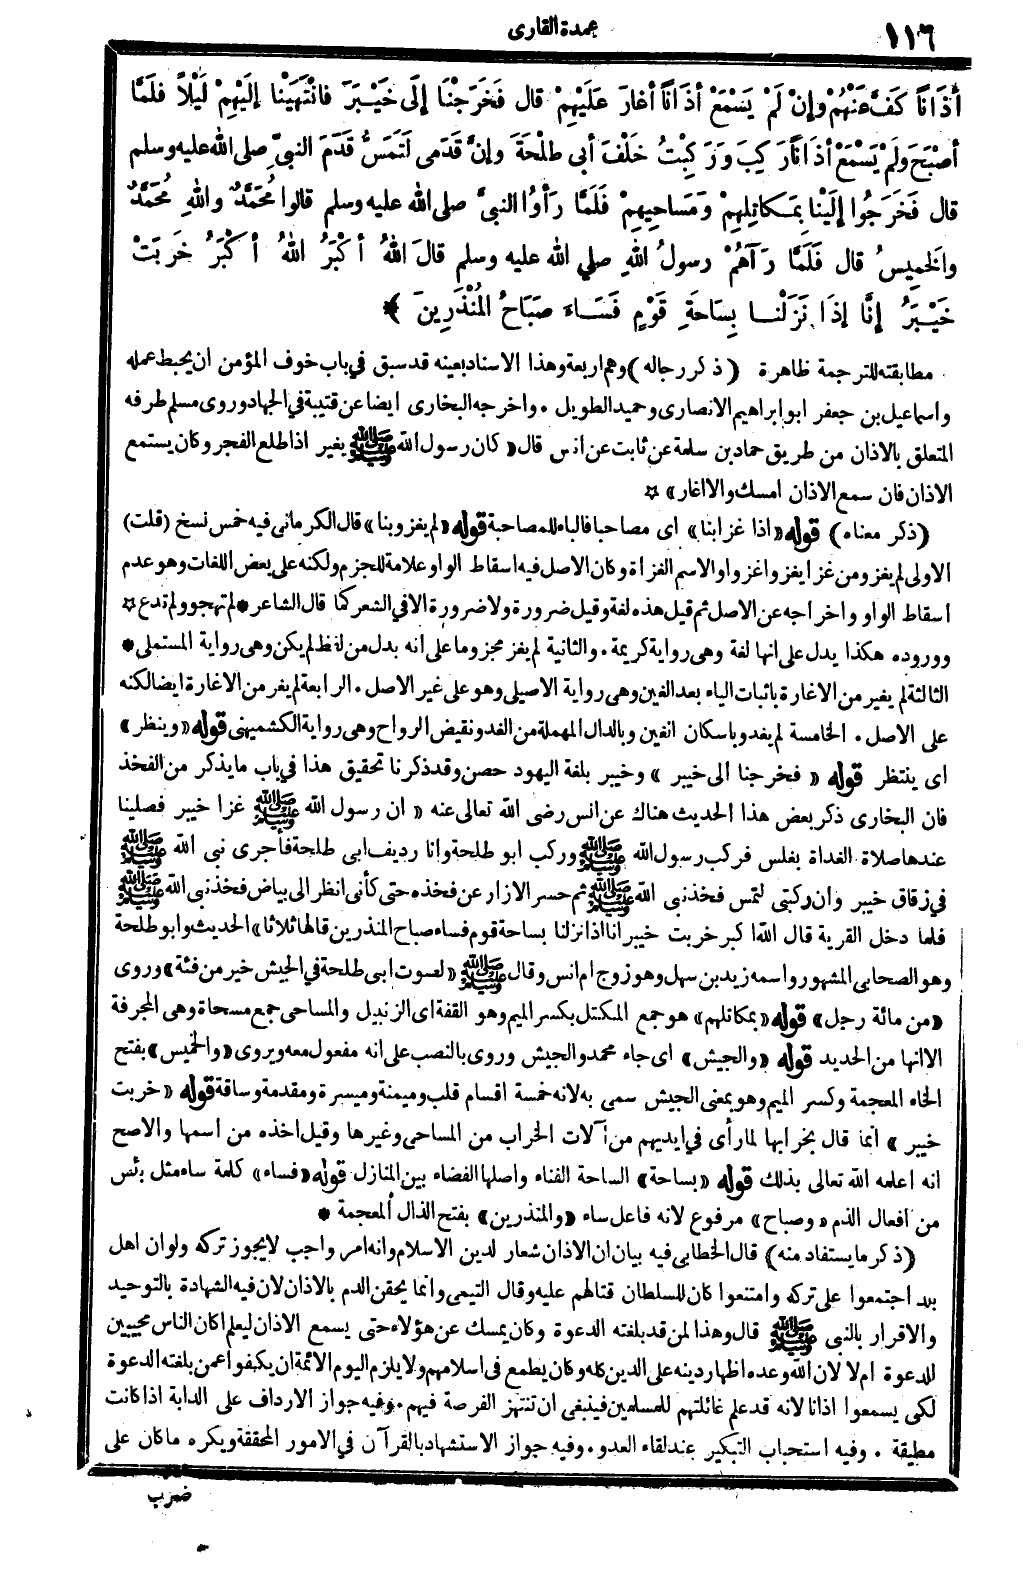 ١١٦
عمدة القارى
أَذَانًا كَفَّ عَنْهُمْ وإنْ لَمْ يَسْمَعْ أذَانًا أغارَ عَلَيْهِمْ قال فَخَرَجْنَا إلَى خَيْبَرَ فانْتَهَيْنَا إلَيْهِمْ لَيْلاً فلَمَّا
أصْبَحَ ولَمْ يَسْمَعْ أذَانًا رَكِبَ وَرَكِبْتُ خَلْفَ أبى طلْحَةَ وإنَّ قَدَمى لَتَمَسُّ قَدَمَ النبيِّ صلى الله عليه وسلم
قال فَخَرَجُوا إلَيْنا بِمَكاتِلِهِمْ ومَسَاحِيهِمْ فَلَمَّا رَأَوُا النبيَّ صلى الله عليه وسلم قالوا مُحَمَّدٌ واللهِ مُحَمَّدٌ
والخَمِيسُ قال فَلَمَّا رَآهُمْ رسولُ اللهِ صلي الله عليه وسلم قالَ اللهُ أكْبَرُ اللهُ أكْبَرُ خَرِبَتْ
خَيْبَرُ إنَّا إذَا نَزَلْنا بِسَاحَةِ قَوْمٍ فَسَاءَ صَبَاحُ المُنْذَرِينَ ﴾
مطابقته للترجمة ظاهرة (ذكر رجاله) وهم اربعة وهذا الاسناد بعينه قد سبق في باب خوف المؤمن ان يحبط عمله
واسماعيل بن جعفر ابو ابراهيم الانصارى وحميد الطويل . واخرجه البخارى ايضا عن قتيبة في الجهاد وروى مسلم طرفه
المتعلق بالاذان من طريق حماد بن سلمة عن ثابت عن انس قال « كان رسول الله ﷺ يغير اذا طلع الفجر وكان يستمع
الاذان فان سمع الاذان امسك والا اغار » ☆
(ذكر معناه) قوله « اذا غزا بنا » اى مصاحبا فالباء للمصاحبة قوله « لم يغزو بنا » قال الكرمانى فيه خمس نسخ (قلت)
الاولى لم يغزو من غزا يغزو اغزوا والاسم الغزاة وكان الاصل فيه اسقاط الواو علامة للجزم ولكنه على بعض اللغات وهو عدم
اسقاط الواو واخراجه عن الاصل ثم قيل هذه لغة وقيل ضرورة ولا ضرورة الا في الشعر كما قال الشاعر * لم تهجو ولم تدع ☆
ووروده هكذا يدل على انها لغة وهى رواية كريمة . والثانية لم يغز مجزوما على انه بدل من لفظ لم يكن وهى رواية المستملى *
الثالثة لم يغير من الاغارة باثبات الياء بعد الغين وهى رواية الاصيلى وهو على غير الاصل . الرابعة لم يغر من الاغارة ايضا لكنه
على الاصل . الخامسة لم يغدو باسكان الغين وبالدال المهملة من الغدو نقيض الرواح وهى رواية الكشميهنى قوله « وينظر »
اى ينتظر قوله « فخرجنا الى خيبر » وخيبر بلغة اليهود حصن وقد ذكرنا تحقيق هذا في باب ما يذكر من الفخذ
فان البخارى ذكر بعض هذا الحديث هناك عن انس رضى الله تعالى عنه « ان رسول الله ﷺ غزا خيبر فصلينا
عندها صلاة الغداة بغلس فركب رسول الله ﷺ وركب ابو طلحة وانا رديف ابى طلحة فأجرى نبى الله ﷺ
في زقاق خيبر وان ركبتى لتمس فخذ نبى الله ﷺ ثم حسر الازار عن فخذه حتى كأنى انظر الى بياض فخذ نبى الله ﷺ
فلما دخل القرية قال الله اكبر خربت خيبر انا اذا نزلنا بساحة قوم فساء صباح المنذرين قالها ثلاثا » الحديث وابو طلحة
وهو الصحابى المشهور واسمه زيد بن سهل وهو زوج ام انس وقال ﷺ « لصوت ابى طلحة في الجيش خير من فئة » وروى
« من مائة رجل » قوله « بمكاتلهم » هو جمع المكتل بكسر الميم وهو القفة اى الزنبيل والمساحى جمع مسحاة وهى المجرفة
الا انها من الحديد قوله « والجيش » اى جاء محمد والجيش وروى بالنصب على انه مفعول معه ويروى « والخميس » بفتح
الخاء المعجمة وكسر الميم وهو بمعنى الجيش سمى به لانه خمسة اقسام قلب وميمنة وميسرة ومقدمة وساقة قوله « خربت
خيبر » انما قال بخرابها لما رأى في ايديهم من آلات الخراب من المساحى وغيرها وقيل اخذه من اسمها والاصح
انه اعلمه الله تعالى بذلك قوله « بساحة » الساحة الفناء واصلها الفضاء بين المنازل قوله « فساء » كلمة ساء مثل بئس
من افعال الذم « وصباح » مرفوع لانه فاعل ساء « والمنذرين » بفتح الذال المعجمة *
(ذكر ما يستفاد منه) قال الخطابى فيه بيان ان الاذان شعار لدين الاسلام وانه امر واجب لا يجوز تركه ولو ان اهل
بلد اجتمعوا على تركه وامتنعوا كان للسلطان قتالهم عليه وقال التيمى وانما يحقن الدم بالاذان لان فيه الشهادة بالتوحيد
والاقرار بالنبى ﷺ قال وهذا لمن قد بلغته الدعوة وكان يمسك عن هؤلاء حتى يسمع الاذان ليعلم اكان الناس مجيبين
للدعوة ام لا لان الله وعده اظهار دينه على الدين كله وكان يطمع فى اسلامهم ولا يلزم اليوم الائمة ان يكفوا عمن بلغته الدعوة
لكى يسمعوا اذانا لانه قد علم غائلتهم للمسلمين فينبغى ان تنتهز الفرصة فيهم . وفيه جواز الارداف على الدابة اذا كانت
مطيقة . وفيه استحباب التبكير عند لقاء العدو . وفيه جواز الاستشهاد بالقرآن في الامور المحققة ويكره ما كان على
ضرب